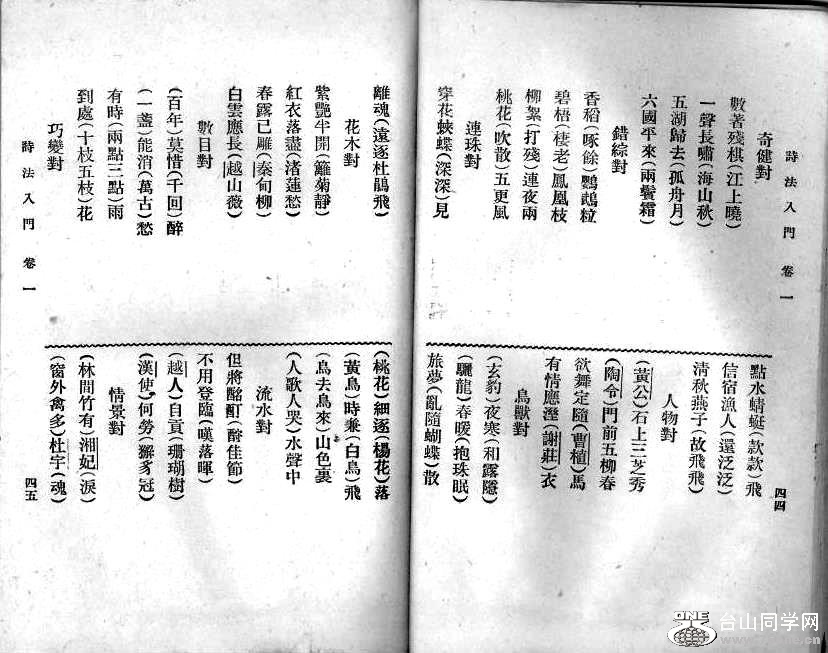 詩法入門 卷一
四四
奇健對
數著殘棋(江上曉)
一聲長嘯(海山秋)
五湖歸去(孤舟月)
六國平來(兩鬢霜)
錯綜對
香稻(啄餘)鸚鵡粒
碧梧(棲老)鳳凰枝
柳絮(打殘)連夜雨
桃花(吹散)五更風
連珠對
穿花蛺蝶(深深)見
點水蜻蜓(款款)飛
信宿漁人(還泛泛)
清秋燕子(故飛飛)
人物對
(黃公)石上三芝秀
(陶令)門前五柳春
欲舞定隨(曹植)馬
有情應溼(謝莊)衣
鳥獸對
(玄豹)夜寒(和露隱)
(驪龍)春暖(抱珠眠)
旅夢(亂隨蝴蝶)散
離魂(遠逐杜鵑飛)
花木對
紫艷半開(籬菊靜)
紅衣落盡(渚蓮愁)
春露已雕(秦甸柳)
白雲應長(越山薇)
數目對
(百年)莫惜(千回)醉
(一盞)能消(萬古)愁
有時(兩點三點)雨
到處(十枝五枝)花
巧變對
(桃花)細逐(楊花)落
(黃鳥)時兼(白鳥)飛
(鳥去鳥來)山色裏
(人歌人哭)水聲中
流水對
但將酩酊(酧佳節)
不用登臨(嘆落暉)
(越人)自貢(珊瑚樹)
(漢使)何勞(獬豸冠)
情景對
(林間竹有)湘妃(淚)
(窗外禽多)杜宇(魂)
詩法入門 卷一
四五
ONE
台山同学网